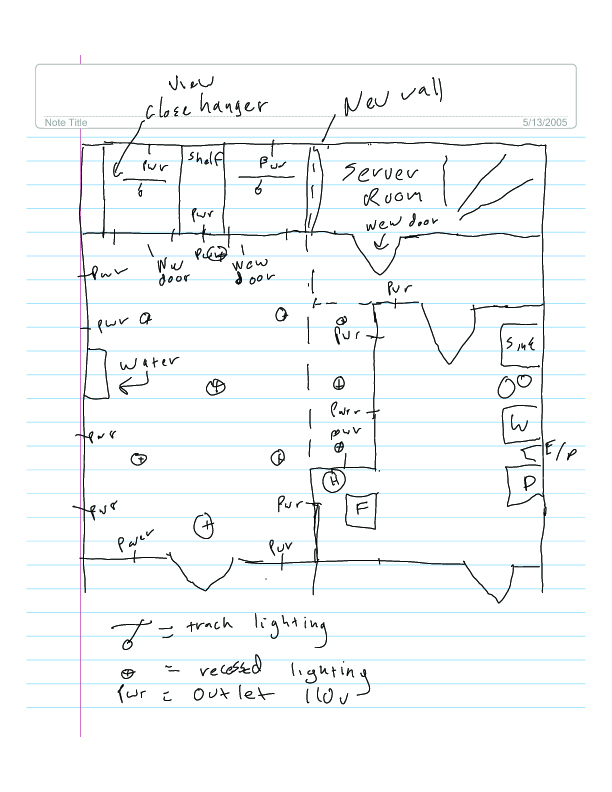 view
close hanger
New wall
Note Title
5/13/2005
Pwr
6
shelf
Pwr
Pwr
6
Server
Room
New door
Pwr
New
door
Pwr
New
door
Pwr
Pwr
Pwr
Sink
Water
Pwr
Pwr
W
E/P
Pwr
H
D
Pwr
Pwr
F
Pwr
Pwr
= track lighting
= recessed lighting
Pwr = outlet 110v